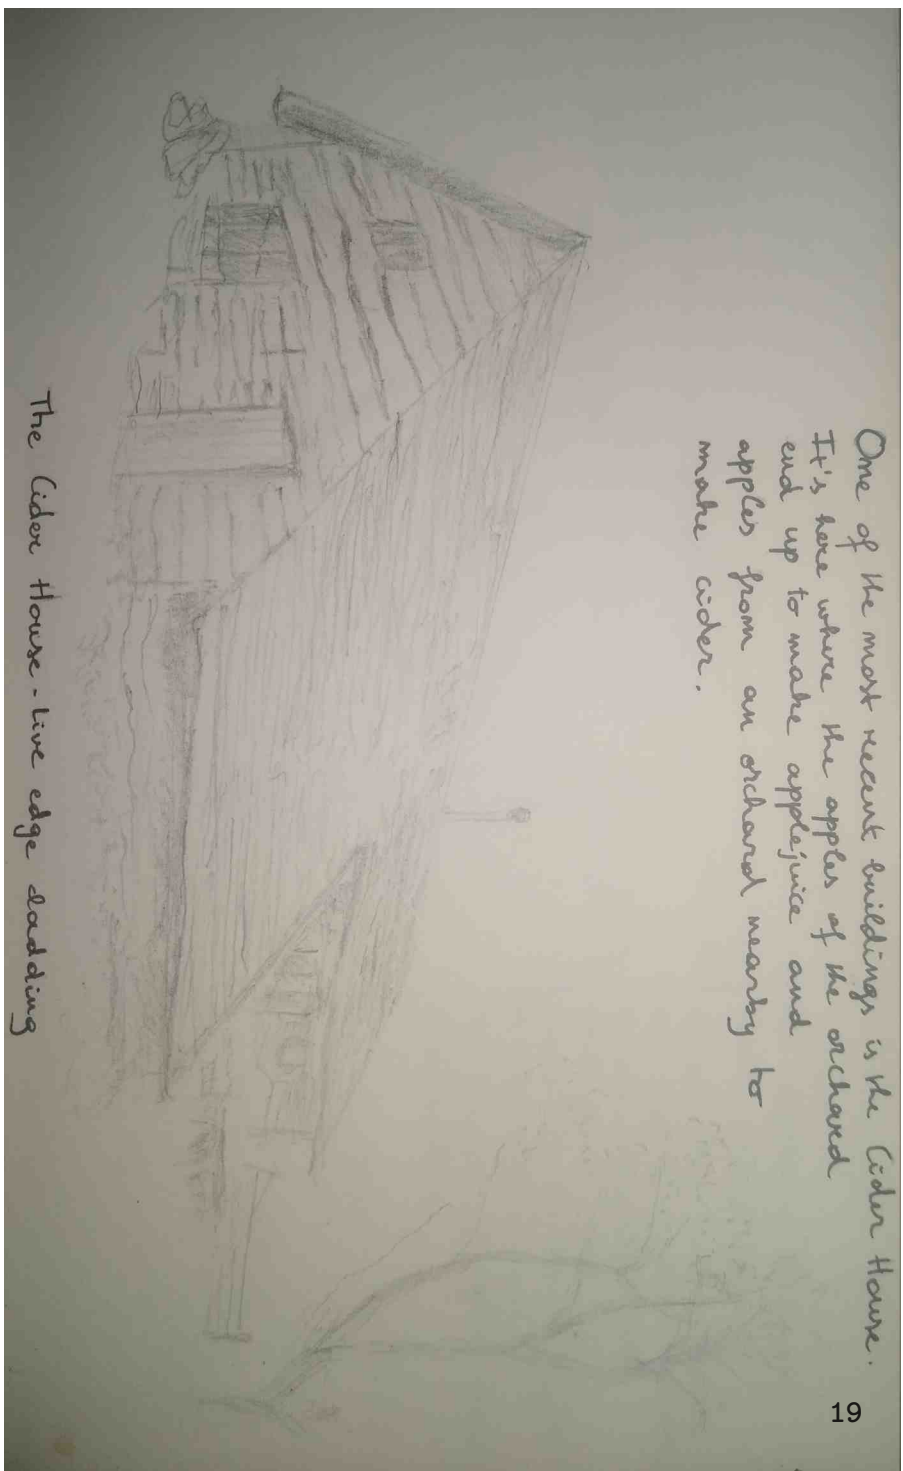 One of the most recent buildings is the Cider House.
It's here where the apples of the orchard
end up to make applejuice and
apples from an orchard nearby to
make cider.
The Cider House - Live edge cladding
19